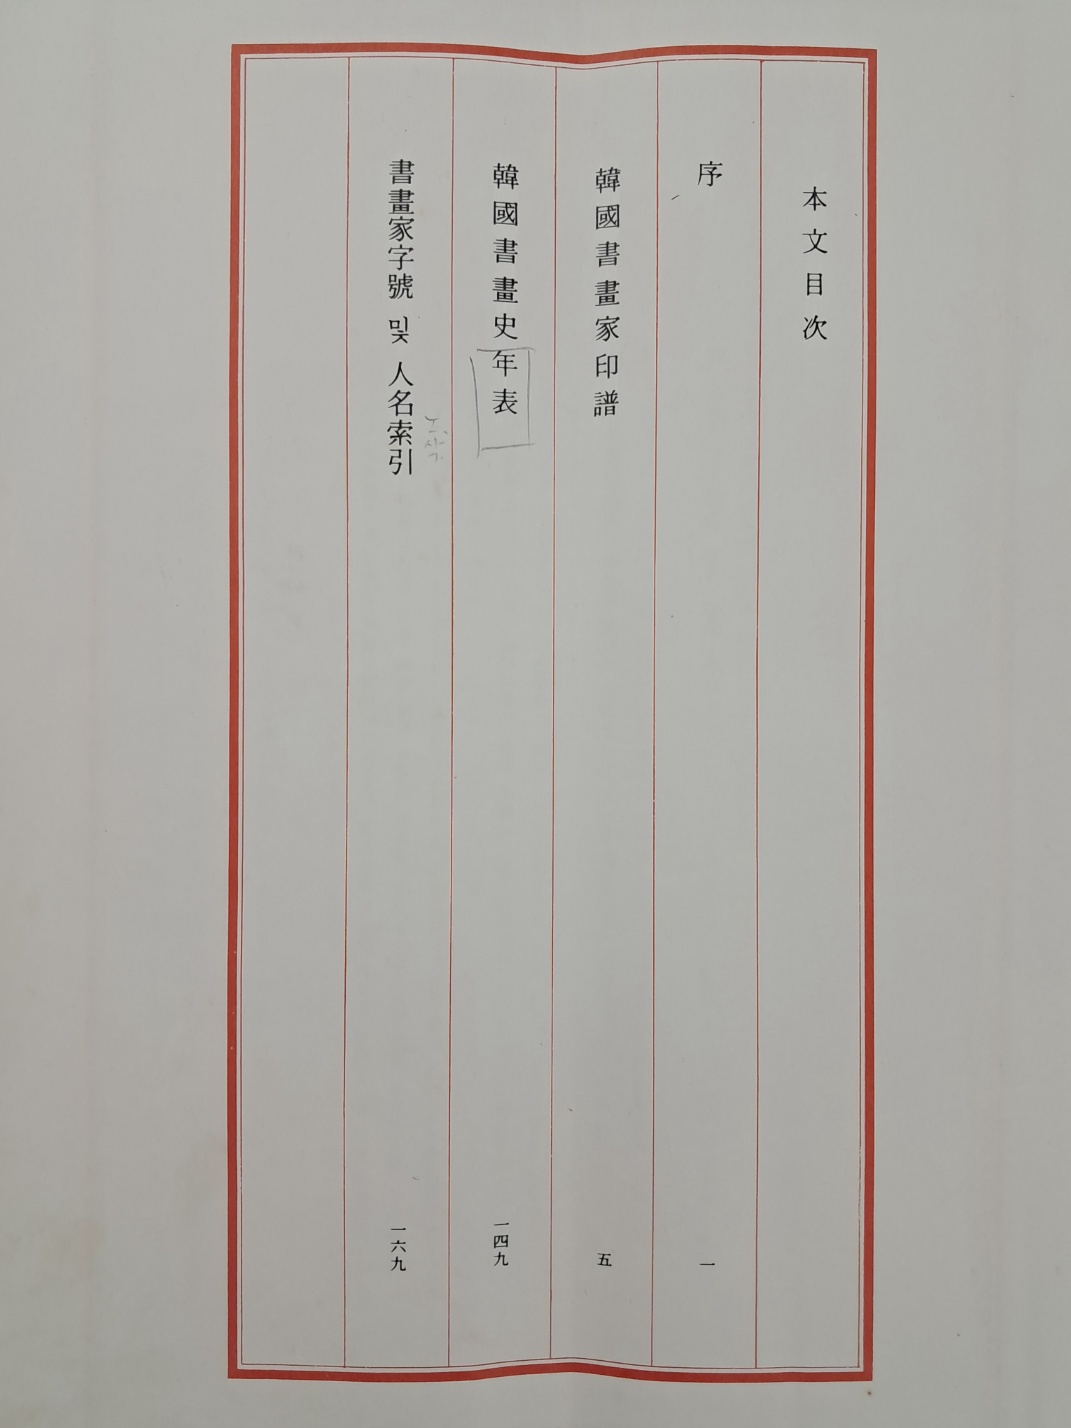 本文目次
序 一
韓國書畫家印譜 五
韓國書畫史年表 一四九
書畫家字號 및 人名索引 一六九